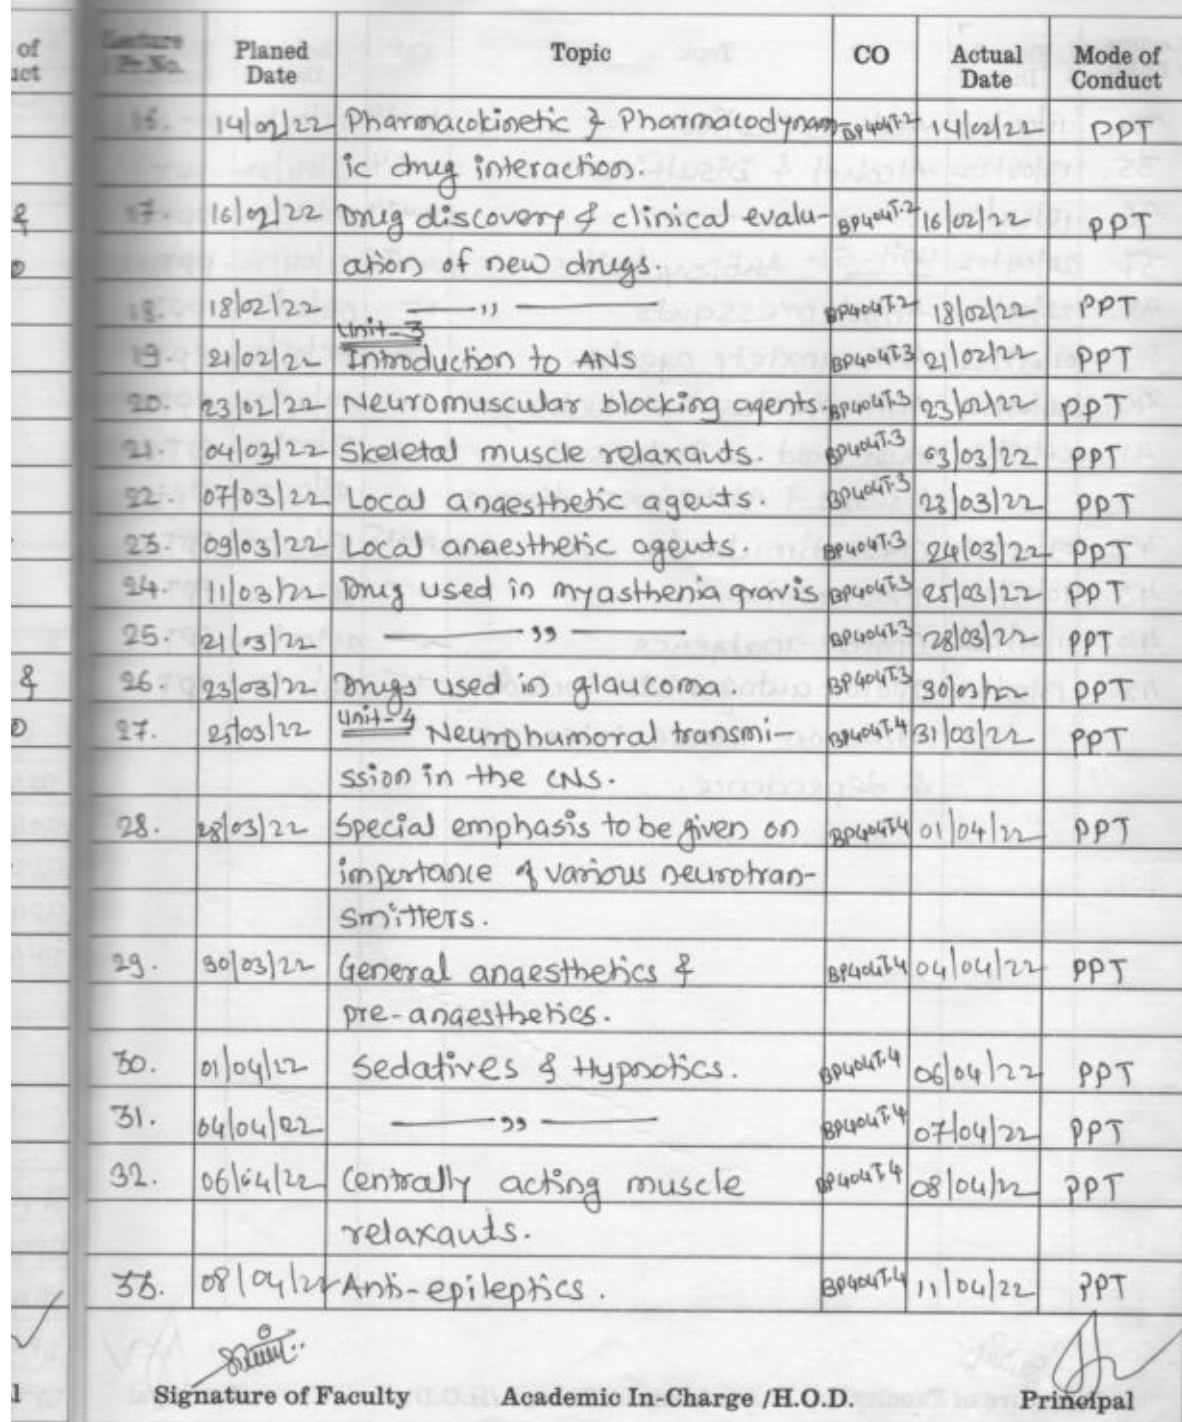 of
uct
Lecture
Pr.No.
Planed
Date
Topic
CO
Actual
Date
Mode of
Conduct
16. 14/02/22 Pharmacokinetic & Pharmacodynam- BP404T.2 14/02/22 PPT
ic drug interaction.
&
17. 16/02/22 Drug discovery & clinical evalu- BP404T.2 16/02/22 PPT
ation of new drugs.
18. 18/02/22 —— ,, —— BP404T.2 18/02/22 PPT
Unit-3
19. 21/02/22 Introduction to ANS BP404T.3 21/02/22 PPT
20. 23/02/22 Neuromuscular blocking agents. BP404T.3 23/02/22 PPT
21. 04/03/22 Skeletal muscle relaxauts. BP404T.3 03/03/22 PPT
22. 07/03/22 Local anaesthetic agents. BP404T.3 23/03/22 PPT
23. 09/03/22 Local anaesthetic agents. BP404T.3 24/03/22 PPT
24. 11/03/22 Drug used in myasthenia gravis BP404T.3 25/03/22 PPT
25. 21/03/22 —— ,, —— BP404T.3 28/03/22 PPT
&
26. 23/03/22 Drugs used in glaucoma. BP404T.3 30/03/22 PPT
27. 25/03/22 Unit-4 Neurohumoral transmi- BP404T.4 31/03/22 PPT
ssion in the CNS.
28. 28/03/22 Special emphasis to be given on BP404T.4 01/04/22 PPT
importance of various neurotran-
smitters.
29. 30/03/22 General anaesthetics & BP404T.4 04/04/22 PPT
pre-anaesthetics.
30. 01/04/22 Sedatives & Hypnotics. BP404T.4 06/04/22 PPT
31. 04/04/22 —— ,, —— BP404T.4 07/04/22 PPT
32. 06/04/22 Centrally acting muscle BP404T.4 08/04/22 PPT
relaxauts.
33. 08/04/22 Anti-epileptics. BP404T.4 11/04/22 PPT
Signature of Faculty Academic In-Charge /H.O.D. Principal